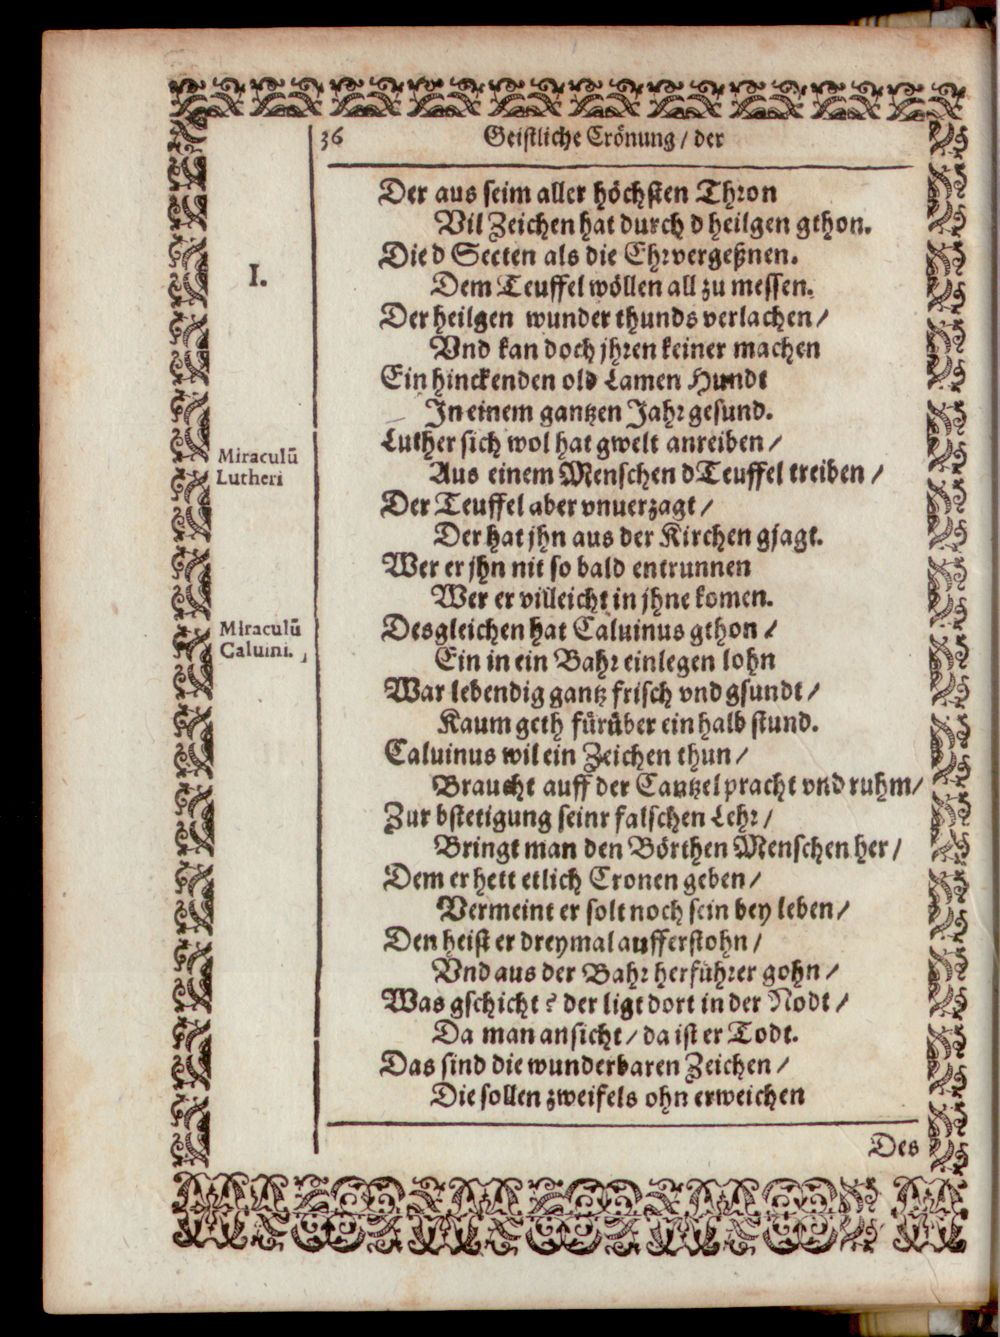 36 Geistliche Crönung / der
Der aus seim aller höchsten Thron
Vil Zeichen hat durch d heilgen gthon.
Die d Secten als die Ehrvergeßnen.
I.
Dem Teuffel wöllen all zu messen.
Der heilgen wunder thunds verlachen /
Vnd kan doch jhren keiner machen
Ein hinckenden old Lamen Hundt
In einem gantzen Jahr gesund.
Luther sich wol hat gwelt anreiben /
Miraculū
Lutheri
Aus einem Menschen dTeuffel treiben /
Der Teuffel aber vnuerzagt /
Der hat jhn aus der Kirchen gjagt.
Wer er jhn nit so bald entrunnen
Wer er villeicht in jhne komen.
Desgleichen hat Caluinus gthon /
Miraculū
Caluini.
Ein in ein Bahr einlegen lohn
War lebendig gantz frisch vnd gsundt /
Kaum geth fürüber ein halb stund.
Caluinus wil ein Zeichen thun /
Braucht auff der Cantzel pracht vnd ruhm /
Zur bstetigung seinr falschen Lehr /
Bringt man den Börthen Menschen her /
Dem er hett etlich Cronen geben /
Vermeint er solt noch sein bey leben /
Den heist er dreymal aufferstohn /
Vnd aus der Bahr herführer gohn /
Was gschicht? der ligt dort in der Nodt /
Da man ansicht / da ist er Todt.
Das sind die wunderbaren Zeichen /
Die sollen zweifels ohn erweichen
Des